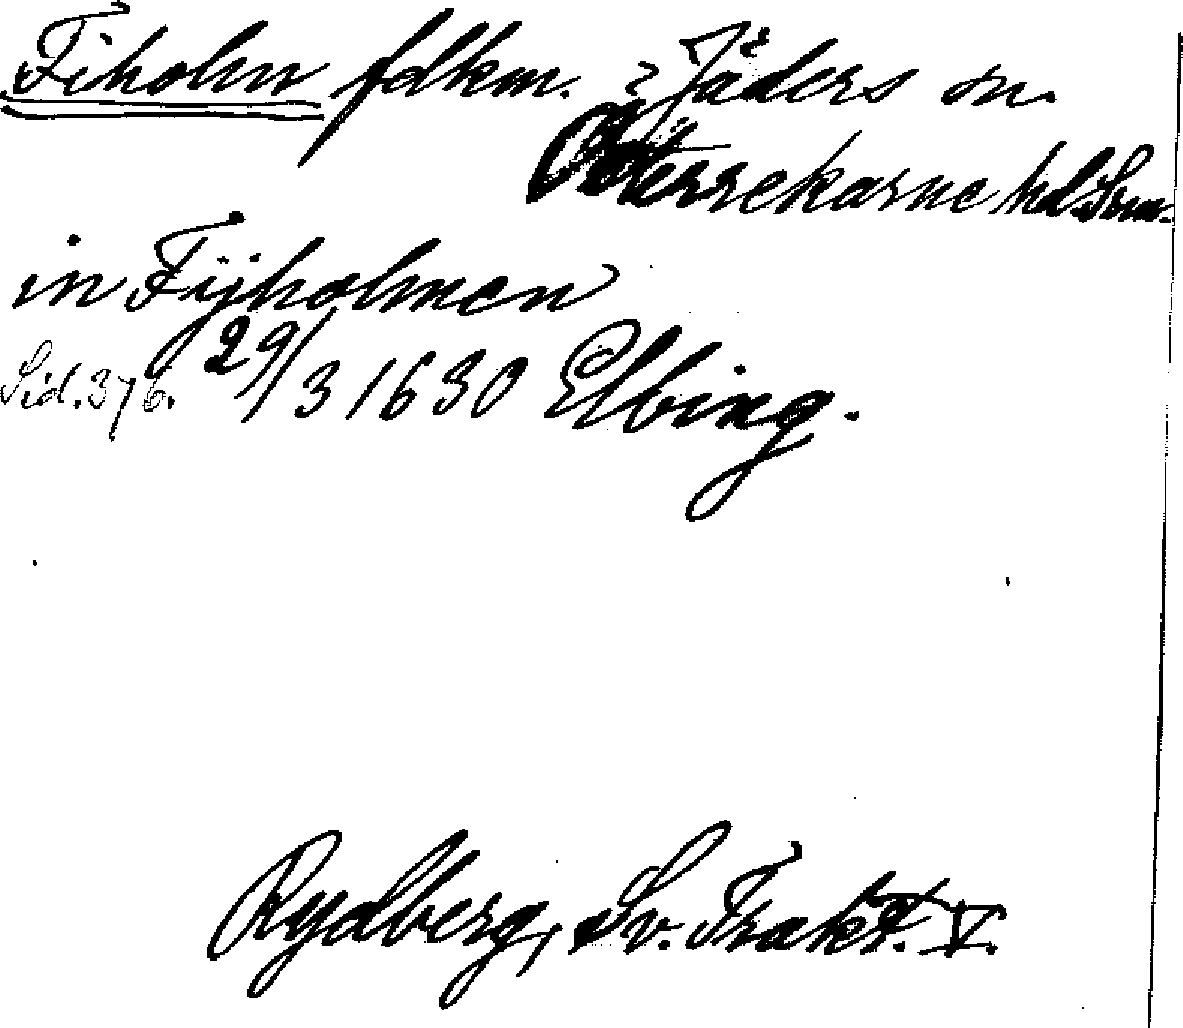 Fiholm fdkm. ? Jäders sn.
Österrekarne hd. Srm.
in Fijholmen
Sid. 376. 29/3 1630 Elbing.
Rydberg, Sv. Trakt. V.